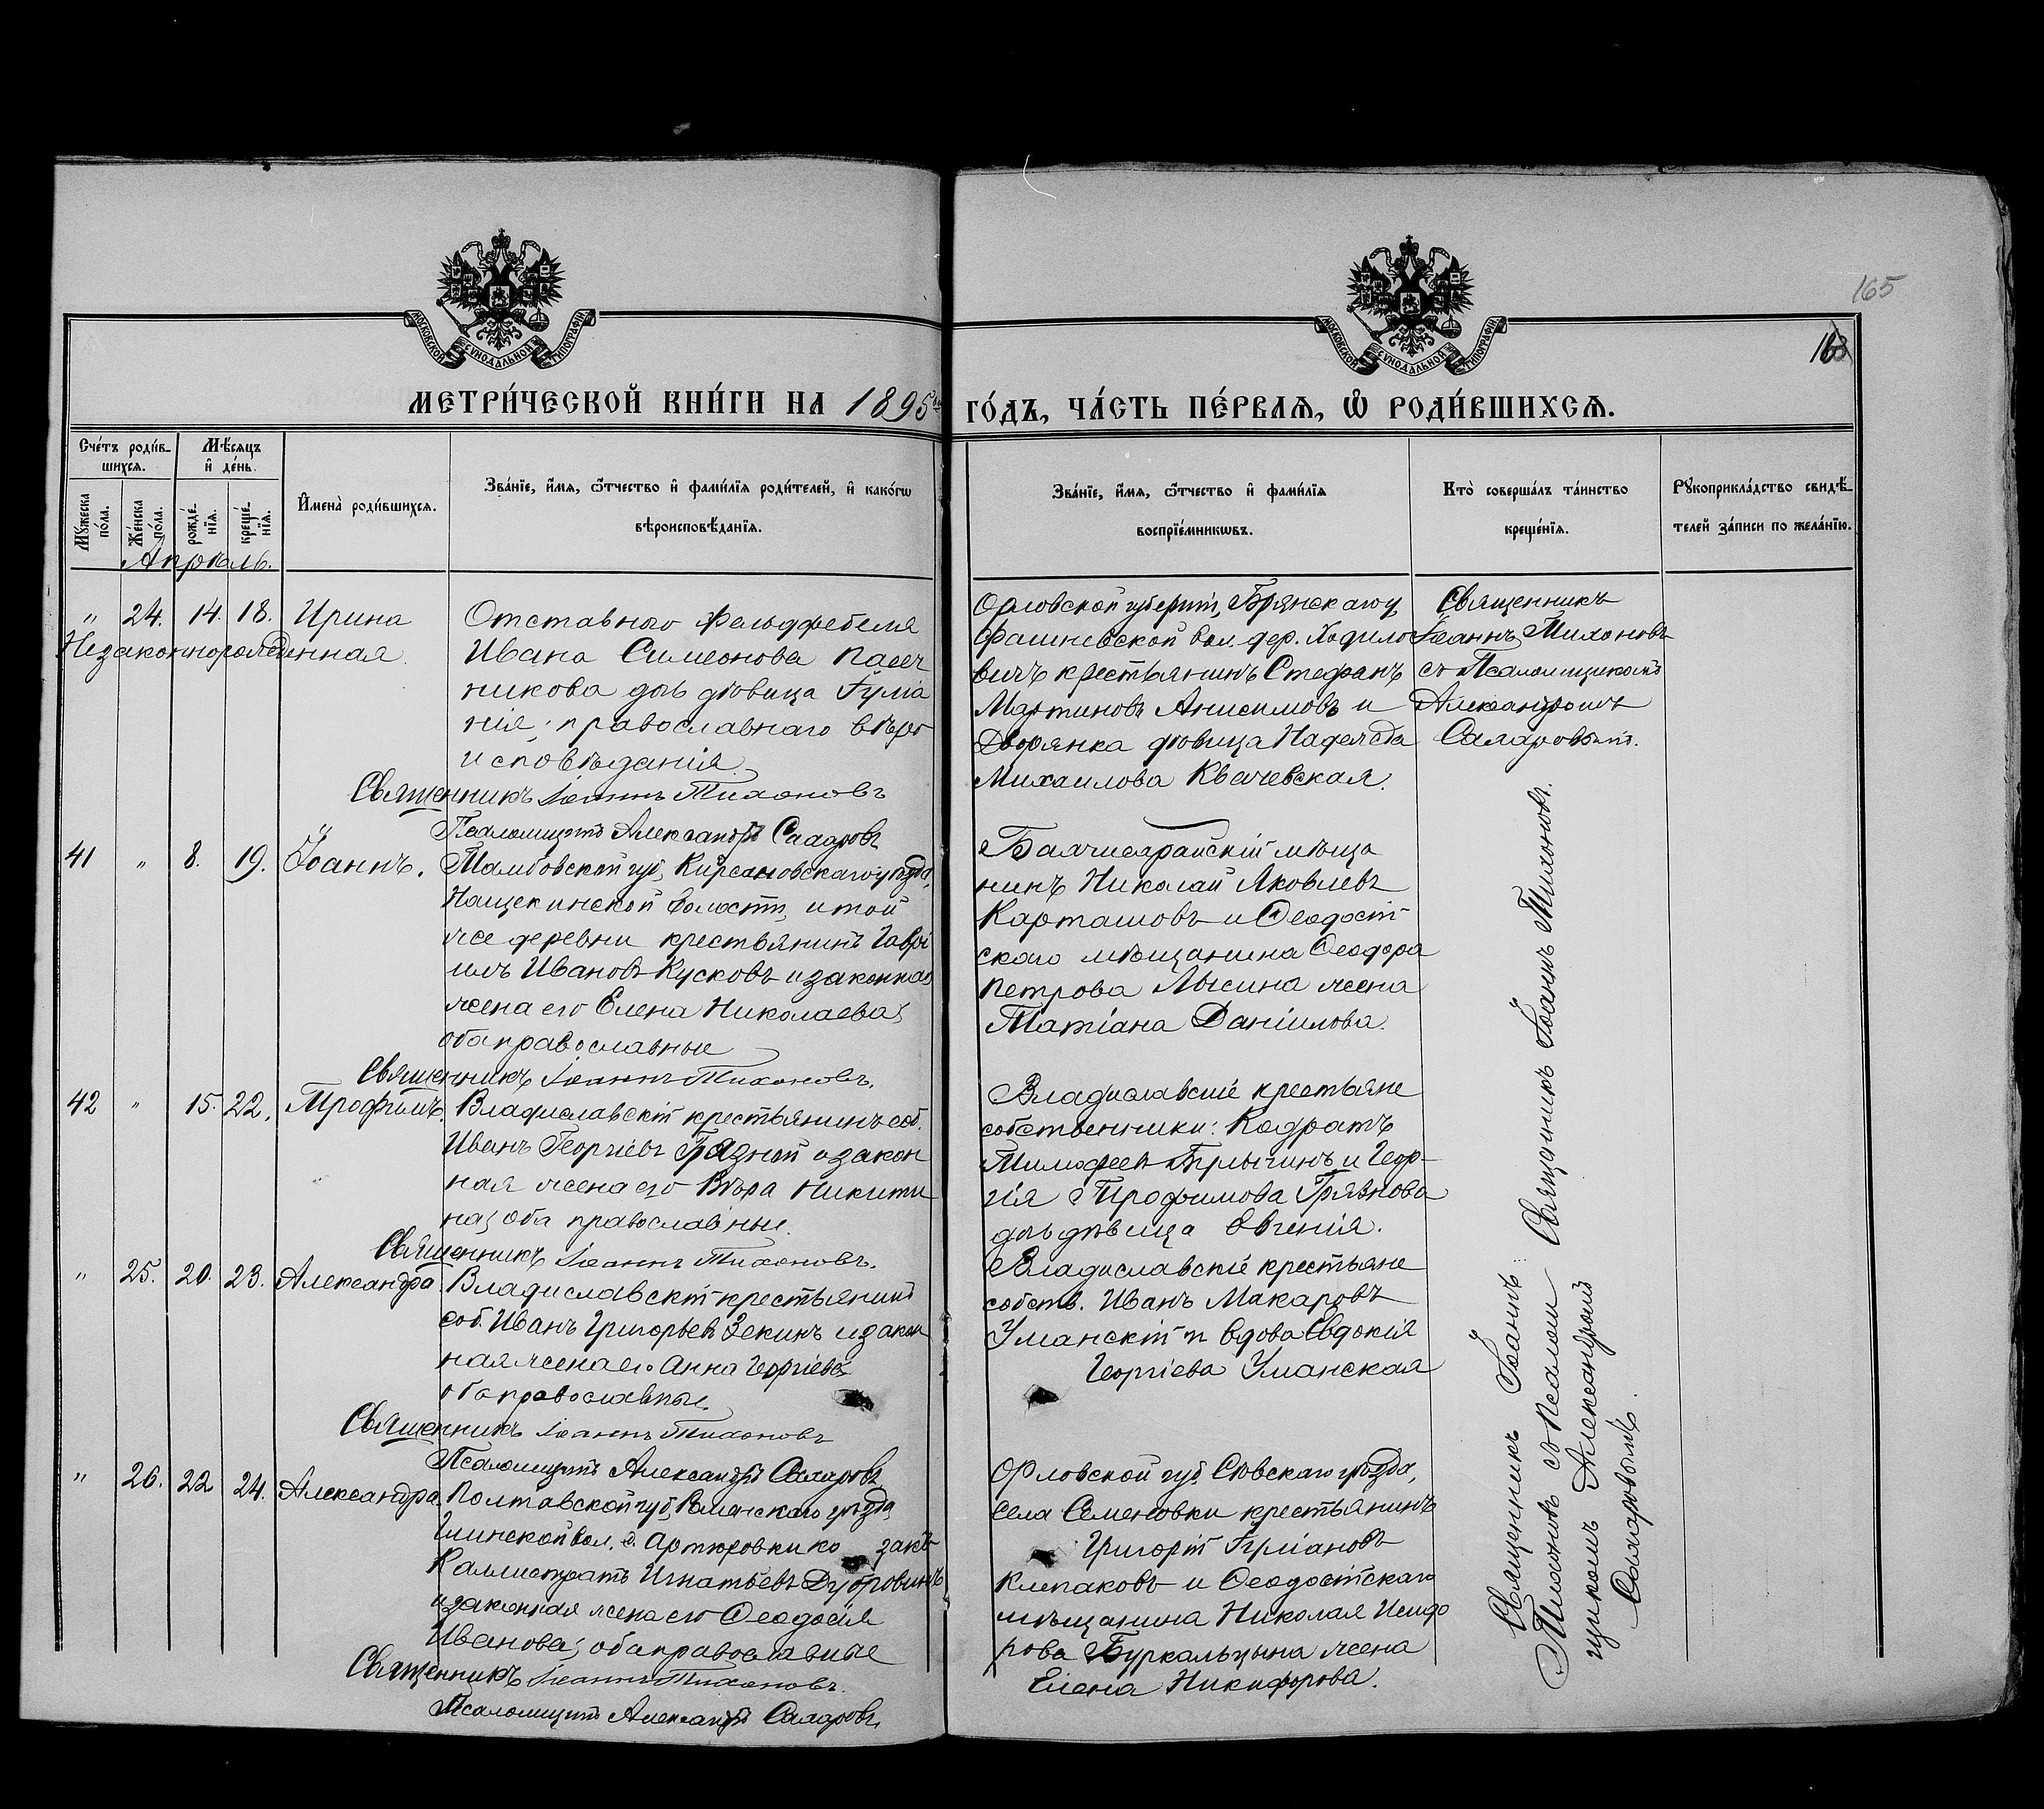 165
163
МОСКОВСКОЙ СѴНОДАЛЬНОЙ ТИПОГРАФІИ
МОСКОВСКОЙ СѴНОДАЛЬНОЙ ТИПОГРАФІИ
МЕТРИ́ЧЕСКОЙ КНИ́ГИ НА 1895
ГО́ДЪ, ЧА́СТЬ ПЕ́РВАѦ, Ѡ҆ РОДИ́ВШИХСѦ.
Сче́тъ роди́в-
шихсѧ.
Мѣ́сѧцъ
и҆ де́нь.
Мꙋ́жеска
по́ла.
Же́нска
по́ла.
рожде́-
нїѧ.
креще́-
нїѧ.
И҆мена̀ роди́вшихсѧ.
Зва́нїе, и҆́мѧ, ѻ҆́тчество и҆ фами́лїѧ роди́телей, и҆ како́гѡ
вѣроисповѣ́данїѧ.
Зва́нїе, и҆́мѧ, ѻ҆́тчество и҆ фами́лїѧ
воспрїе́мникѡвъ.
Кто̀ соверша́лъ та́инство
креще́нїѧ.
Рꙋкоприкла́дство свидѣ́-
телей за́писи по жела́нїю.
Апрѣль.
" 24. 14. 18. Ирина
Незаконнорожденная
Отставного Фельдфебеля
Ивана Симеонова Пасеч
никова дочь дѣвица Іуліа
нія; православнаго вѣро
исповѣданія.
Священникъ Іоаннъ Тихоновъ
Псаломщикъ Александръ Сахаровъ
Орловской губерніи, Брянскаго у,
Фашневской вол. дер. Ходило
вичъ крестьянинъ Стефанъ
Мартиновъ Анисимовъ и
Дворянка дѣвица Надежда
Михаилова Квачевская.
Священникъ
Іоаннъ Тихоновъ
съ Псаломщикомъ
Александромъ
Сахаровымъ.
41 " 8. 19. Іоаннъ.
Тамбовской губ, Кирсановскаго уѣзда,
Нащекинской волости, и той
же деревни крестьянинъ Гаврі
илъ Ивановъ Кусковъ и законная
жена его Елена Николаева;
оба православные
Священникъ Іоаннъ Тихоновъ.
Бахчисарайскій мѣща
нинъ Николай Яковлевъ
Карташовъ и Ѳеодосій-
скаго мѣщанина Ѳеодора
Петрова Лысина жена
Татіана Даніилова.
42 " 15. 22. Трофимъ.
Владиславскій крестьянинъ соб.
Иванъ Георгіевъ Грязной и закон
ная жена его Вѣра Никити
на; оба православные.
Священникъ Іоаннъ Тихоновъ.
Владиславскіе крестьяне
собственники: Кодратъ
Тимофеев и Геор-
гія Трофимова Грязнова
дочь дѣвица Евгенія.
" 25. 20. 23. Александра
Владиславскій крестьянинъ
соб. Иванъ Григорьевъ Зекинъ и закон
ная жена его Анна Георгіева;
оба православные.
Священникъ Іоаннъ Тихоновъ
Псаломщикъ Александръ Сахаровъ
Владиславскіе крестьяне
собств. Иванъ Макаровъ
Уманскій и вдова Евдокія
Георгіева Уманская
" 26. 22 24. Александра
Полтавской губ, Роменскаго уѣзда,
Глинской вол. д. Артюховки козакъ
Каллистратъ Игнатьевъ Дубровинъ
и законная жена его Ѳеодосія
Иванова; оба православные
Священникъ Іоаннъ Тихоновъ.
Псаломщикъ Александръ Сахаровъ.
Орловской губ, Сѣвскаго уѣзда,
села Семеновки крестьянинъ
Григорій Іуліановъ
Клепаковъ и Ѳеодосійскаго
мѣщанина Николая Исидо
рова Буркальцына жена
Елена Никифорова.
Священникъ Іоаннъ Священникъ Іоаннъ Тихоновъ.
Тихоновъ съ Псалом
щикомъ Александромъ
Сахаровымъ.